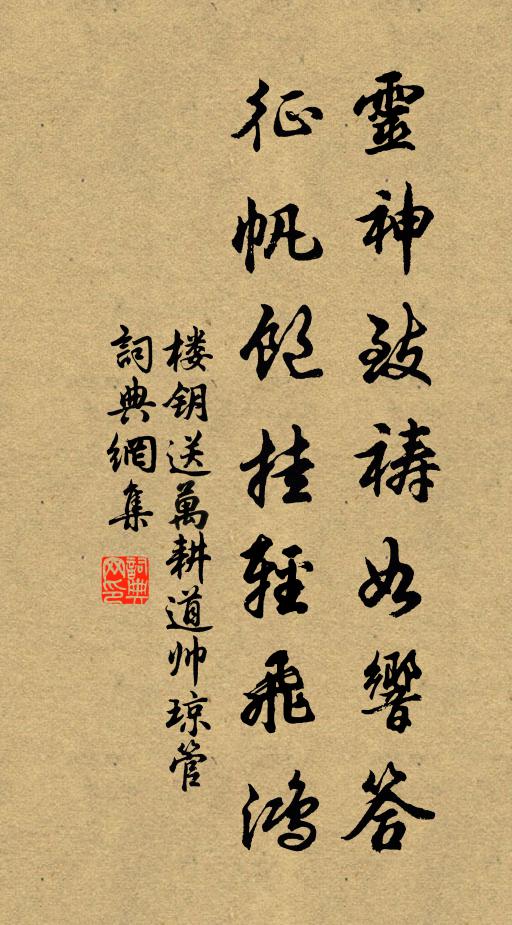 靈神致禱如響答
征帆飽挂輕飛鴻
楼钥送萬耕道帅琼管
詞典網集
詞典网印